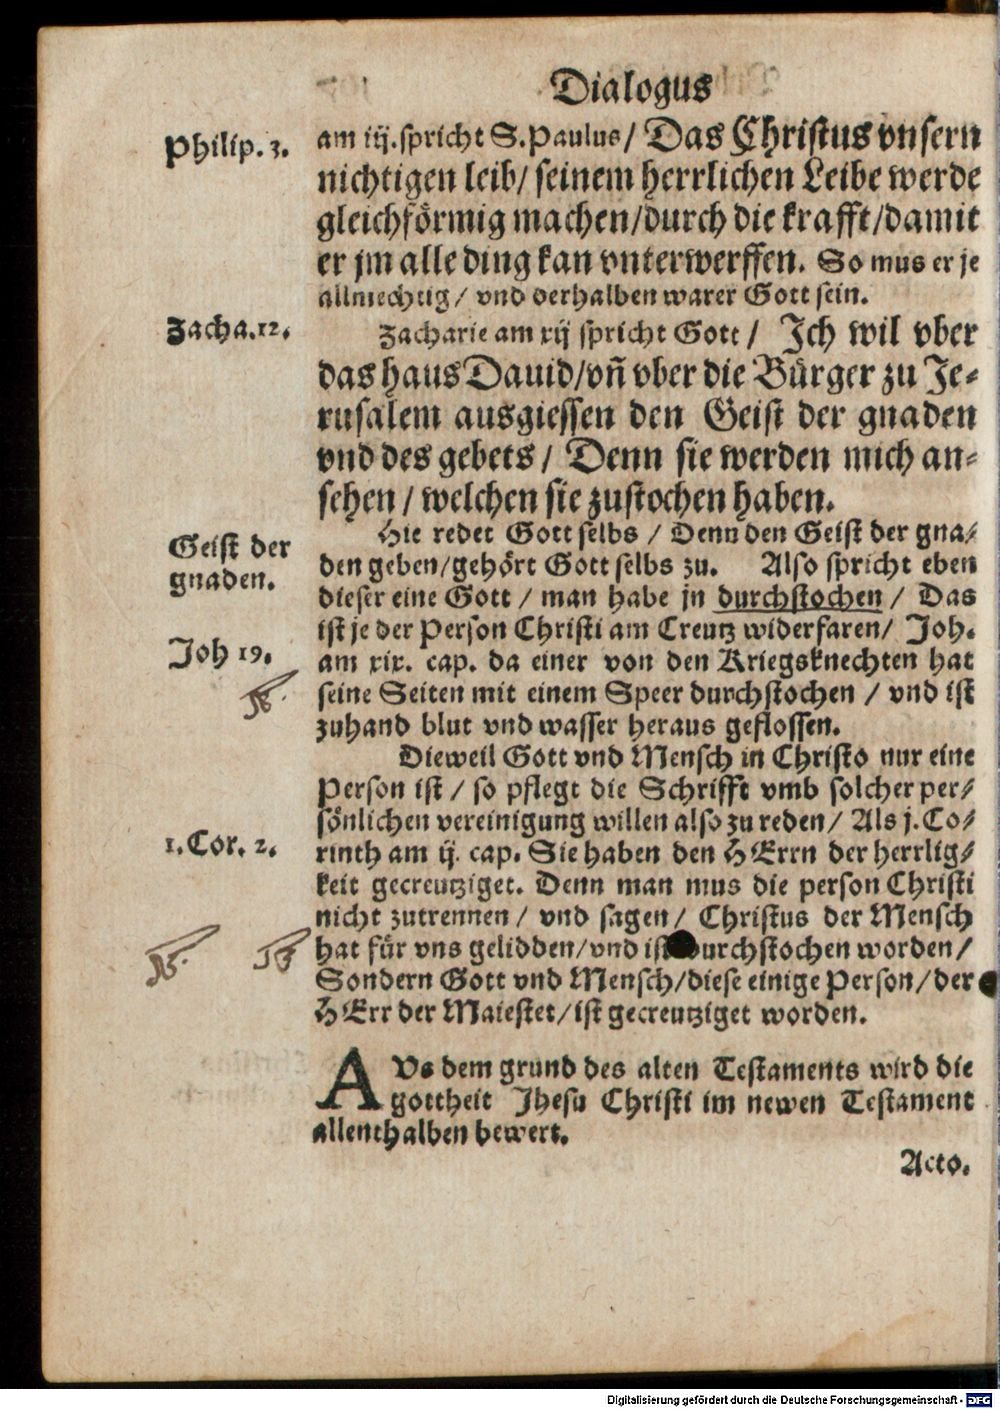 Dialogus
Philip. 3.
am iij. spricht S. Paulus / Das Christus vnsern
nichtigen leib / seinem herrlichen Leibe werde
gleichförmig machen / durch die krafft / damit
er jm alle ding kan vnterwerffen. So mus er je
allmechtig / vnd derhalben warer Gott sein.
Zacha. 12.
Zacharie am xij spricht Gott / Ich wil vber
das haus Dauid / vñ vber die Bürger zu Je-
rusalem ausgiessen den Geist der gnaden
vnd des gebets / Denn sie werden mich an-
sehen / welchen sie zustochen haben.
Geist der
gnaden.
Hie redet Gott selbs / Denn den Geist der gna-
den geben / gehört Gott selbs zu. Also spricht eben
dieser eine Gott / man habe jn durchstochen / Das
Joh 19.
ist je der Person Christi am Creutz widerfaren / Joh.
am xix. cap. da einer von den Kriegsknechten hat
seine Seiten mit einem Speer durchstochen / vnd ist
zuhand blut vnd wasser heraus geflossen.
Dieweil Gott vnd Mensch in Christo nur eine
Person ist / so pflegt die Schrifft vmb solcher per-
sönlichen vereinigung willen also zu reden / Als j. Co-
1. Cor. 2.
rinth am ij. cap. Sie haben den HErrn der herrlig-
keit gecreutziget. Denn man mus die person Christi
nicht zutrennen / vnd sagen / Christus der Mensch
hat für vns gelidden / vnd ist durchstochen worden /
Sondern Gott vnd Mensch / diese einige Person / der
HErr der Maiestet / ist gecreutziget worden.
AVs dem grund des alten Testaments wird die
gottheit Jhesu Christi im newen Testament
allenthalben bewert.
Acto.
Digitalisierung gefördert durch die Deutsche Forschungsgemeinschaft - DFG